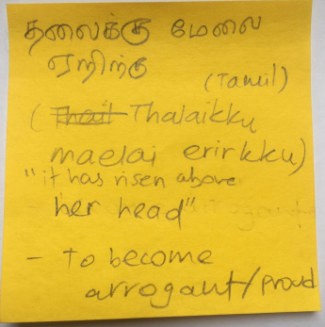 தலைக்கு மேலை
ஏறிற்கு
(Tamil)
(Thai Thalaikku
maelai erirkku)
"it has risen above
her head"
- to become
arrogant/proud